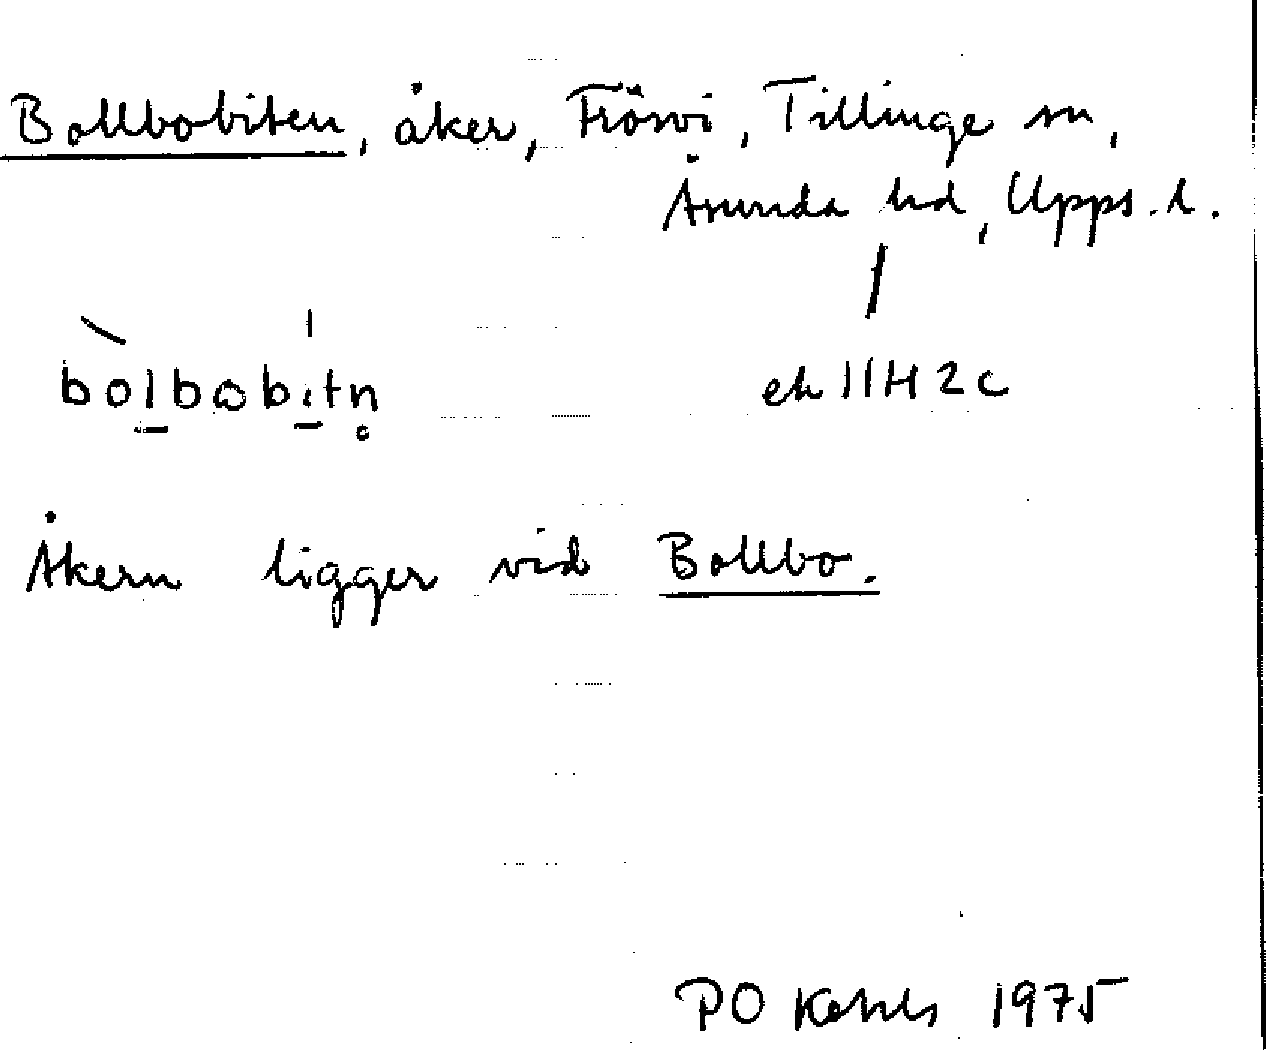 Bollbobiten, åker, Frösvi, Tillinge sn,
Åsunda hd, Upps. l.
bolbobitn̥
ek 11H2c
Åkern ligger vid Bollbo.
PO 1975